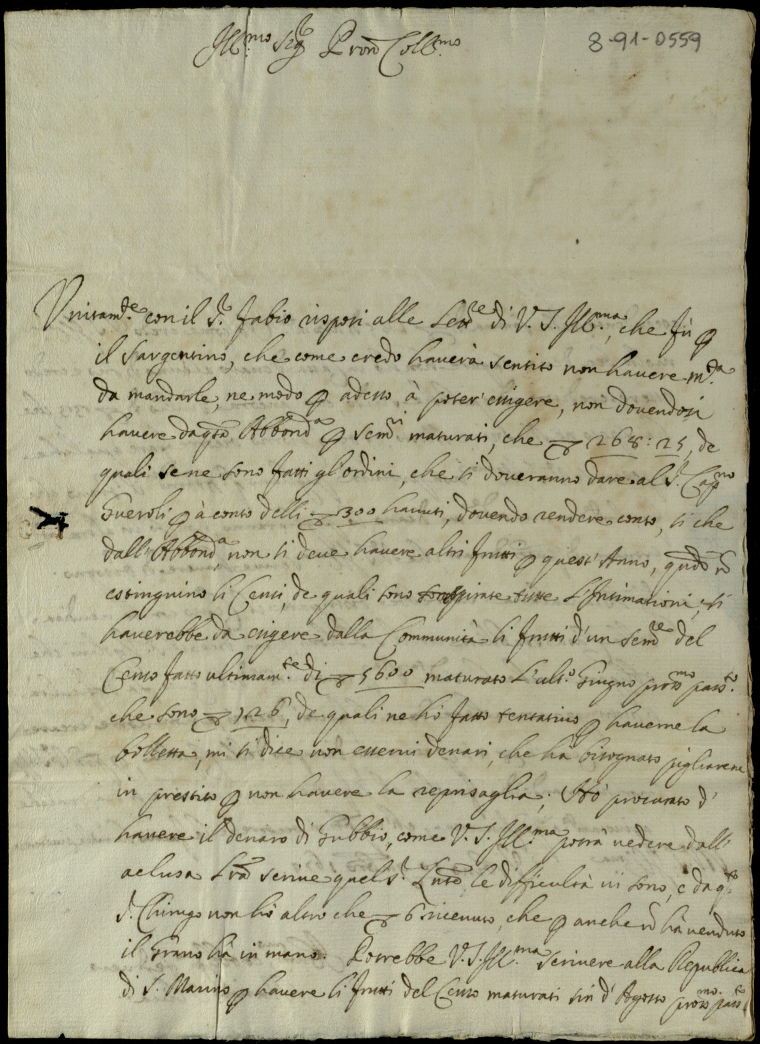 8-91-0559
Ill.mo Sig.r Pron Coll.mo
Unitam.te con il S.r Fabio risposi alle Lett.re di V. S. Ill.ma, che fù p
il Sargentino, che come credo haverà sentito non havere m.da
da mandarle, ne modo p adesso à poter' esigere, non dovendosi
havere da q.ta Abbond.a p sem.ri maturati, che 268:25, de
quali se ne sono fatti gl'ordini, che si doveranno dare al S.r Cap.no
Gueroli p à conto delli 1300 havuti, dovendo rendere conto, si che
dall'Abbond.a non si deve havere altri frutti p quest'Anno, q.ndo nõ
estinguino li Censi, de quali sono spirate tutte l'Intimationi, si
haverebbe da esigere dalla Communità li frutti d'un sem.re del
Censo fatto ultimam.te di 5600 maturato l'ult.o Giugno pross.mo pass.to
che sono 126, de quali ne hò fatto tentativo p haverne la
bolletta, mi si dice non esservi denari, che hà bisognato pigliarene
in prestito p non havere la represaglia; Hò procurato d'
havere il denaro di Gubbio, come V. S. Ill.ma potrà vedere dall'
aclusa L.ra scrive quel S.r le difficultà vi sono, e da q.to
S.r Chirugo non hò altro che 6 ricevuto, che p anche nõ hà venduto
il Grano hà in mano. Potrebbe V. S. Ill.ma scrivere alla Republica
di S. Marino p havere li frutti del Censo maturati sin d'Agosto pross.mo pass.to